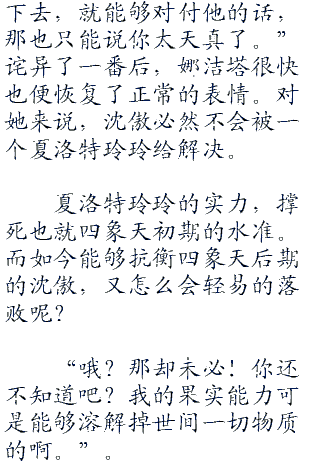 下去，就能够对付他的话，
那也只能说你太天真了。”
诧异了一番后，娜洁塔很快
也便恢复了正常的表情。对
她来说，沈傲必然不会被一
个夏洛特玲玲给解决。
夏洛特玲玲的实力，撑
死也就四象天初期的水准。
而如今能够抗衡四象天后期
的沈傲，又怎么会轻易的落
败呢？
“哦？那却未必！你还
不知道吧？我的果实能力可
是能够溶解掉世间一切物质
的啊。”。